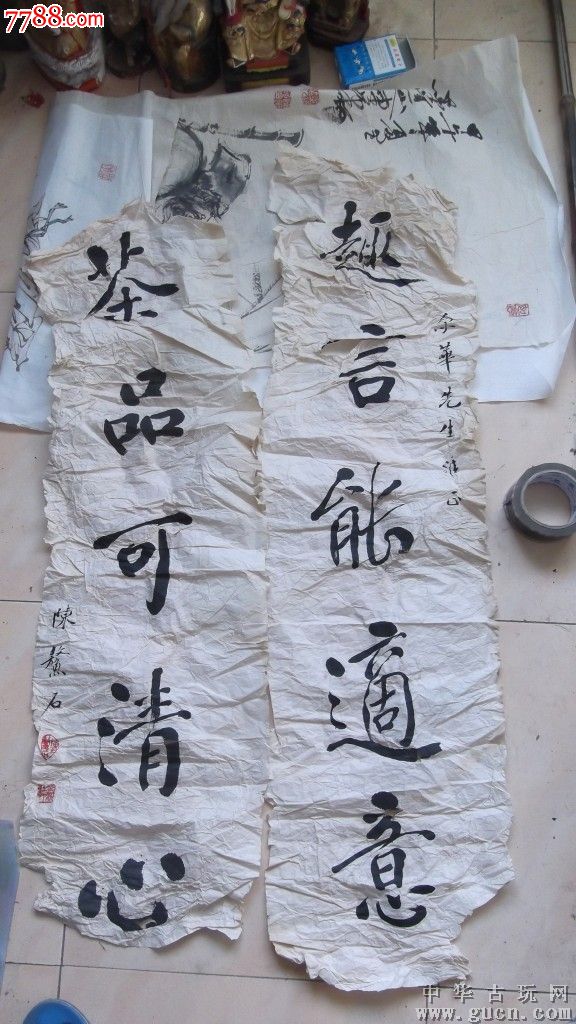 7788.com
余華先生雅正
趣言能適意
茶品可清心
陳鰲石
中华古玩网
www.gucn.com